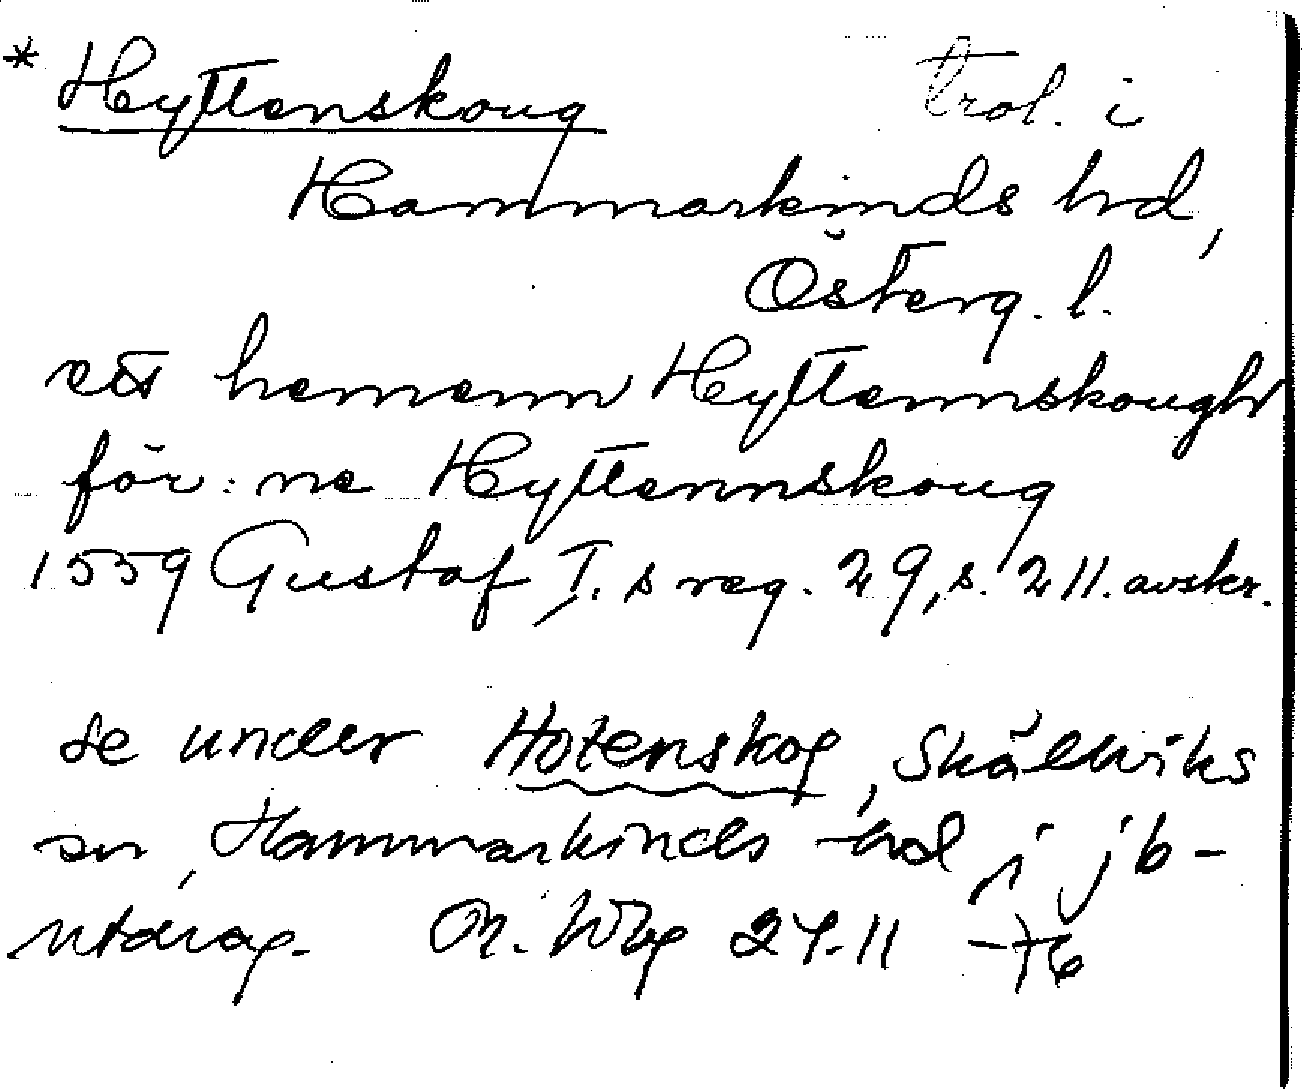 * Hyttenskoug trol. i
Hammarkinds hrd,
Österg. l.
ett hemenn Hyttennskough
för: ne Hyttennskoug
1559 Gustaf I. s reg. 29, s. 211. avskr.
se under Hotenskog, Skällviks
sn, Hammarkinds hrd, i jb-
utdrag. 11 -76